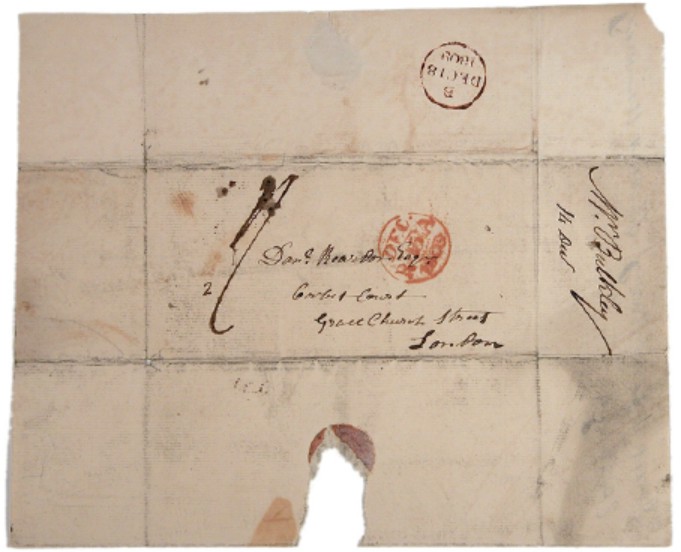 B
DEC 18
1809
Danl. Reardon Esqr
Corbet Court
Grace Church Street
London
2
DEC
Wm. Bulkley
14 Dec